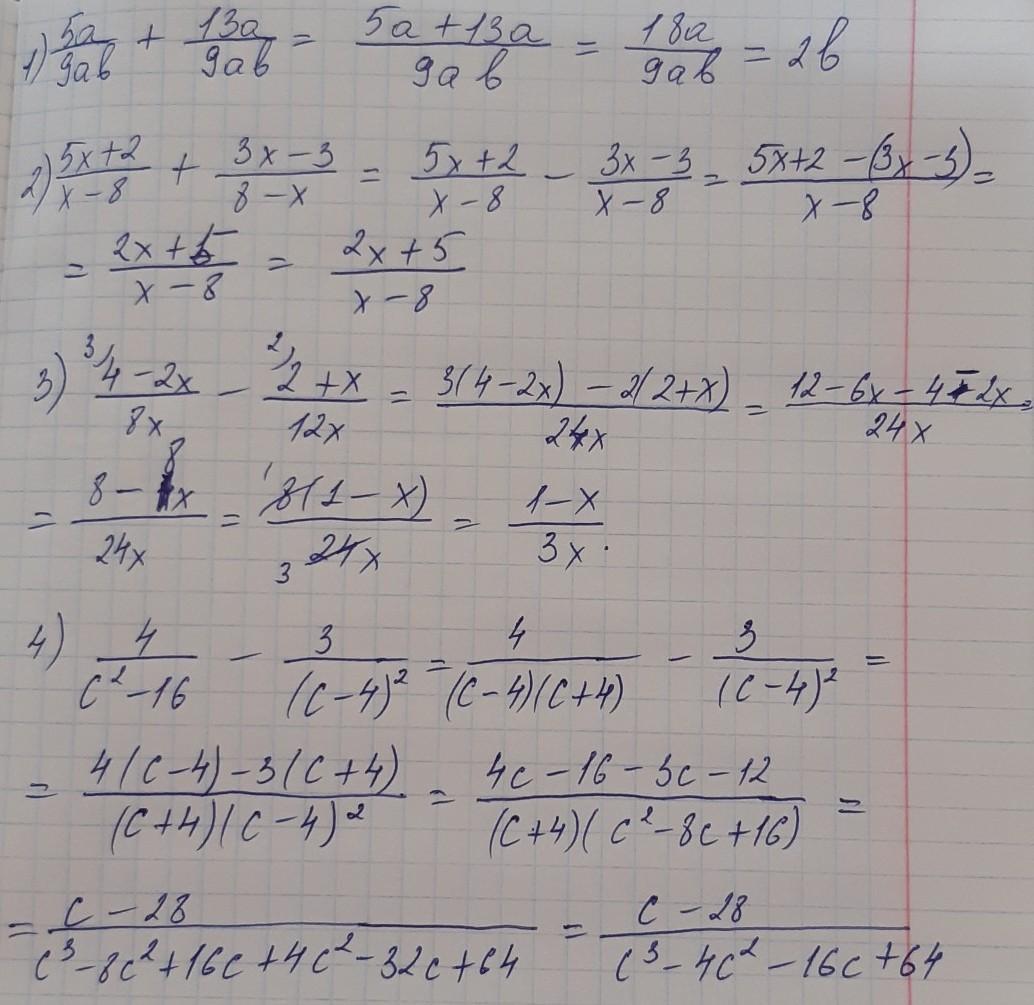 1) 5a/9ab + 13a/9ab = (5a + 13a)/9ab = 18a/9ab = 2b
2) (5x+2)/(x-8) + (3x-3)/(8-x) = (5x+2)/(x-8) - (3x-3)/(x-8) = (5x+2-(3x-3))/(x-8) =
= (2x+5)/(x-8) = (2x+5)/(x-8)
3) ³⁾(4-2x)/8x - ²⁾(2+x)/12x = (3(4-2x) - 2(2+x))/24x = (12-6x-4-2x)/24x =
= (8-8x)/24x = ¹8(1-x)/₃24x = (1-x)/3x.
4) 4/(c²-16) - 3/(c-4)² = 4/((c-4)(c+4)) - 3/(c-4)² =
= (4(c-4)-3(c+4))/((c+4)(c-4)²) = (4c-16-3c-12)/((c+4)(c²-8c+16)) =
= (c-28)/(c³-8c²+16c+4c²-32c+64) = (c-28)/(c³-4c²-16c+64)